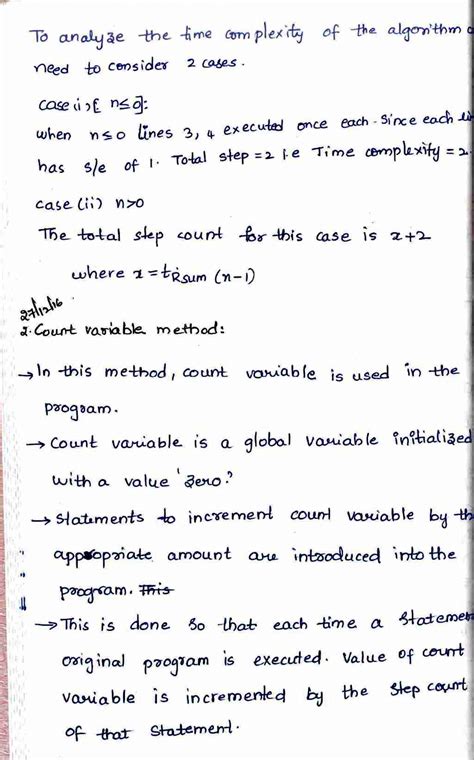 To analyze the time complexity of the algorithm
need to consider 2 cases.
case (i) { n≤0}:
when n≤0 lines 3, 4 executed once each. Since each
has s/e of 1. Total step = 2 i.e Time complexity = 2.
case (ii) n>0
The total step count for this case is x+2
where x = tRsum (n-1)
27/12/16
2. Count variable method:
→ In this method, count variable is used in the
program.
→ Count variable is a global variable initialized
with a value 'zero'.
→ Statements to increment count variable by th
appropriate amount are introduced into the
program. This
→ This is done so that each time a Statemen
original program is executed. Value of count
variable is incremented by the step count
of that statement.